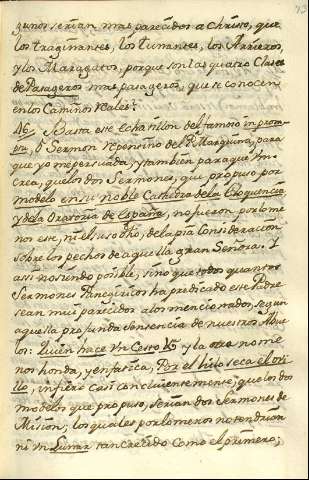 gunos serian mas parecidos a Christo, que
los traginantes, los tunantes, los Arrieros,
y los Maragatos, porque son las quatro Clases
de Pasageros mas pasageros, que se conocen
en los Caminos reales.
16. Basta este echantillon del famoso in prom
ptu, ò Sermon repentino del P. Marquina, para
que yo me persuada, y tambien para que Vm
crea, que los dos Sermones, que propuso por
modelo en su noble Cathedra de la Eloquencia
y de la Oratoria de España, no fueron por lo me
nos este, ni el uso otro, de la pia Consideracion
sobre los pechos de aquella gran Señora. Y
assi no siendo posible, sino que todos quantos
Sermones Panegiricos ha predicado este Padre
sean mui parecidos a los mencionados, segun
aquella profunda sentencia de nuestros Abue
los: Quien hace un Cesto &c y la otra no me
nos honda, y enfatica, Por el hilo se saca el ovi
llo, infiero casi concluientemente, que los dos
modelos que propuso, serian dos Sermones de
Mision; los quales por lo menos no tendrian
ni un Lunar tan crecido como el primero;